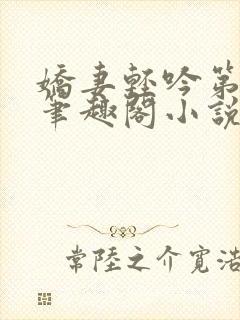 嬌妻輕吟第
筆趣閣小說
常陸之介寬浩